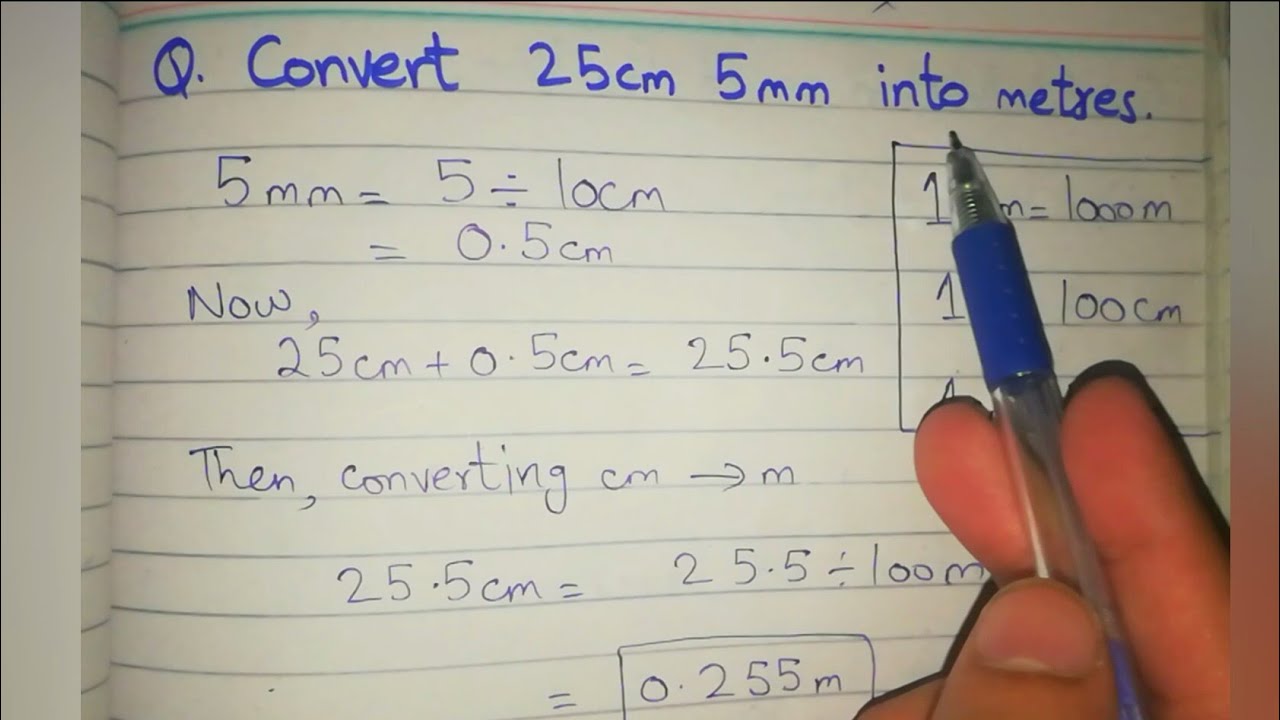 Q. Convert 25cm 5mm into metres.
5mm = 5 ÷ 10cm
= 0.5cm
Now,
25cm + 0.5cm = 25.5cm
Then, converting cm → m
25.5cm = 25.5 ÷ 100m
= 0.255m
1 m = 1000m
1 100cm
1